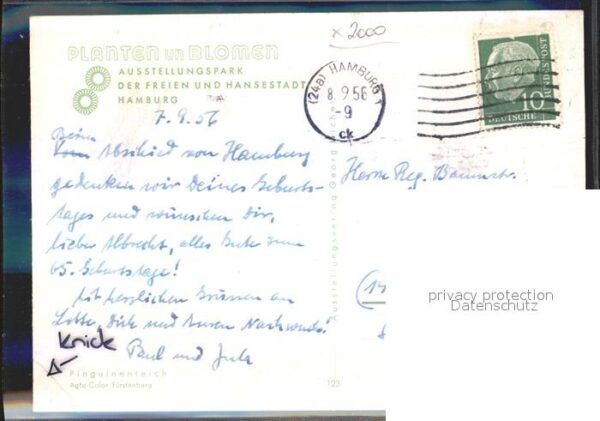 x 2000
PLANTEN un BLOMEN
AUSSTELLUNGSPARK
DER FREIEN UND HANSESTADT
HAMBURG
(24a) HAMBURG 1
8.9.56
-9
ck
10
DEUTSCHE
BUNDESPOST
7.9.56
Beim
Abschied von Hamburg
gedenken wir Deines Geburts-
tages und wünschen Dir,
lieber Albrecht, alles Gute zum
65. Geburtstage!
Mit herzlichen Grüssen an
Lotte, Dich und Euren Nachwuchs!
Paul und
Knick
Pinguinenteich
Agfa-Color: Fürstenberg
Ausstellungsverlag Georg
123
Herrn Reg. Baumstr.
privacy protection
Datenschutz